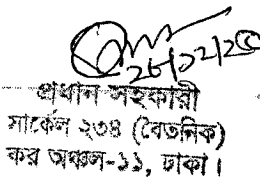 ২৬/০২/২৫
প্রধান সহকারী
সার্কেল ২৩৪ (বৈতনিক)
কর অঞ্চল-১১, ঢাকা।